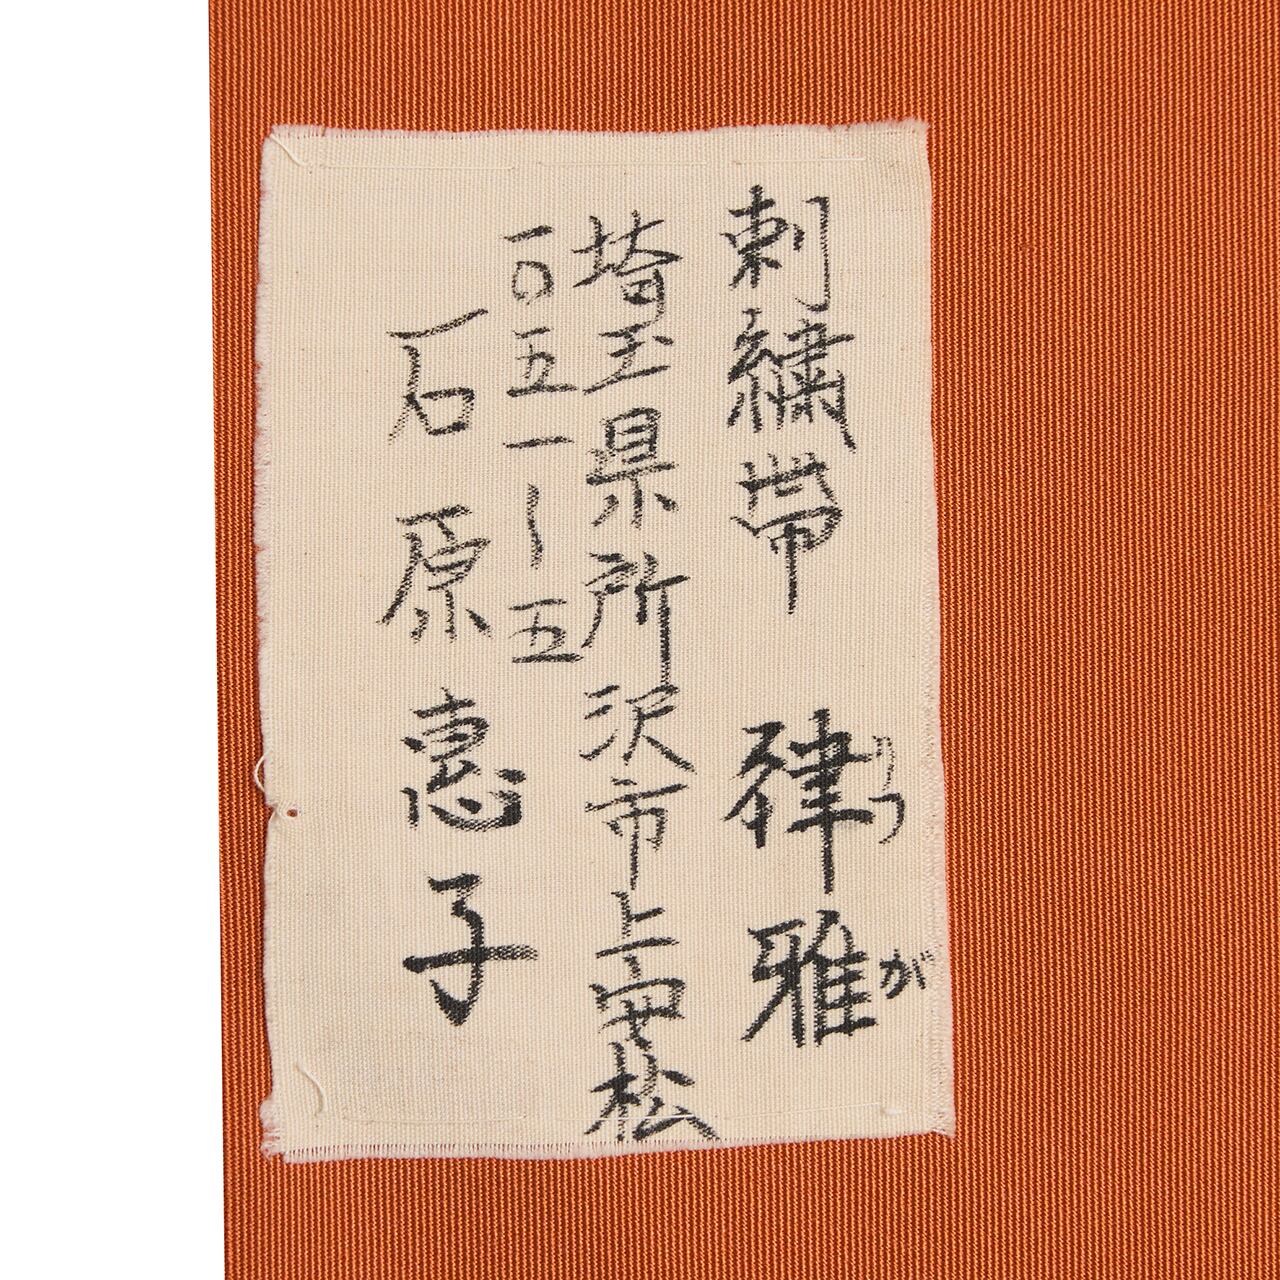 刺繍帯 律雅
りつ が
埼玉県所沢市上安松
一〇五一ー五
石原恵子